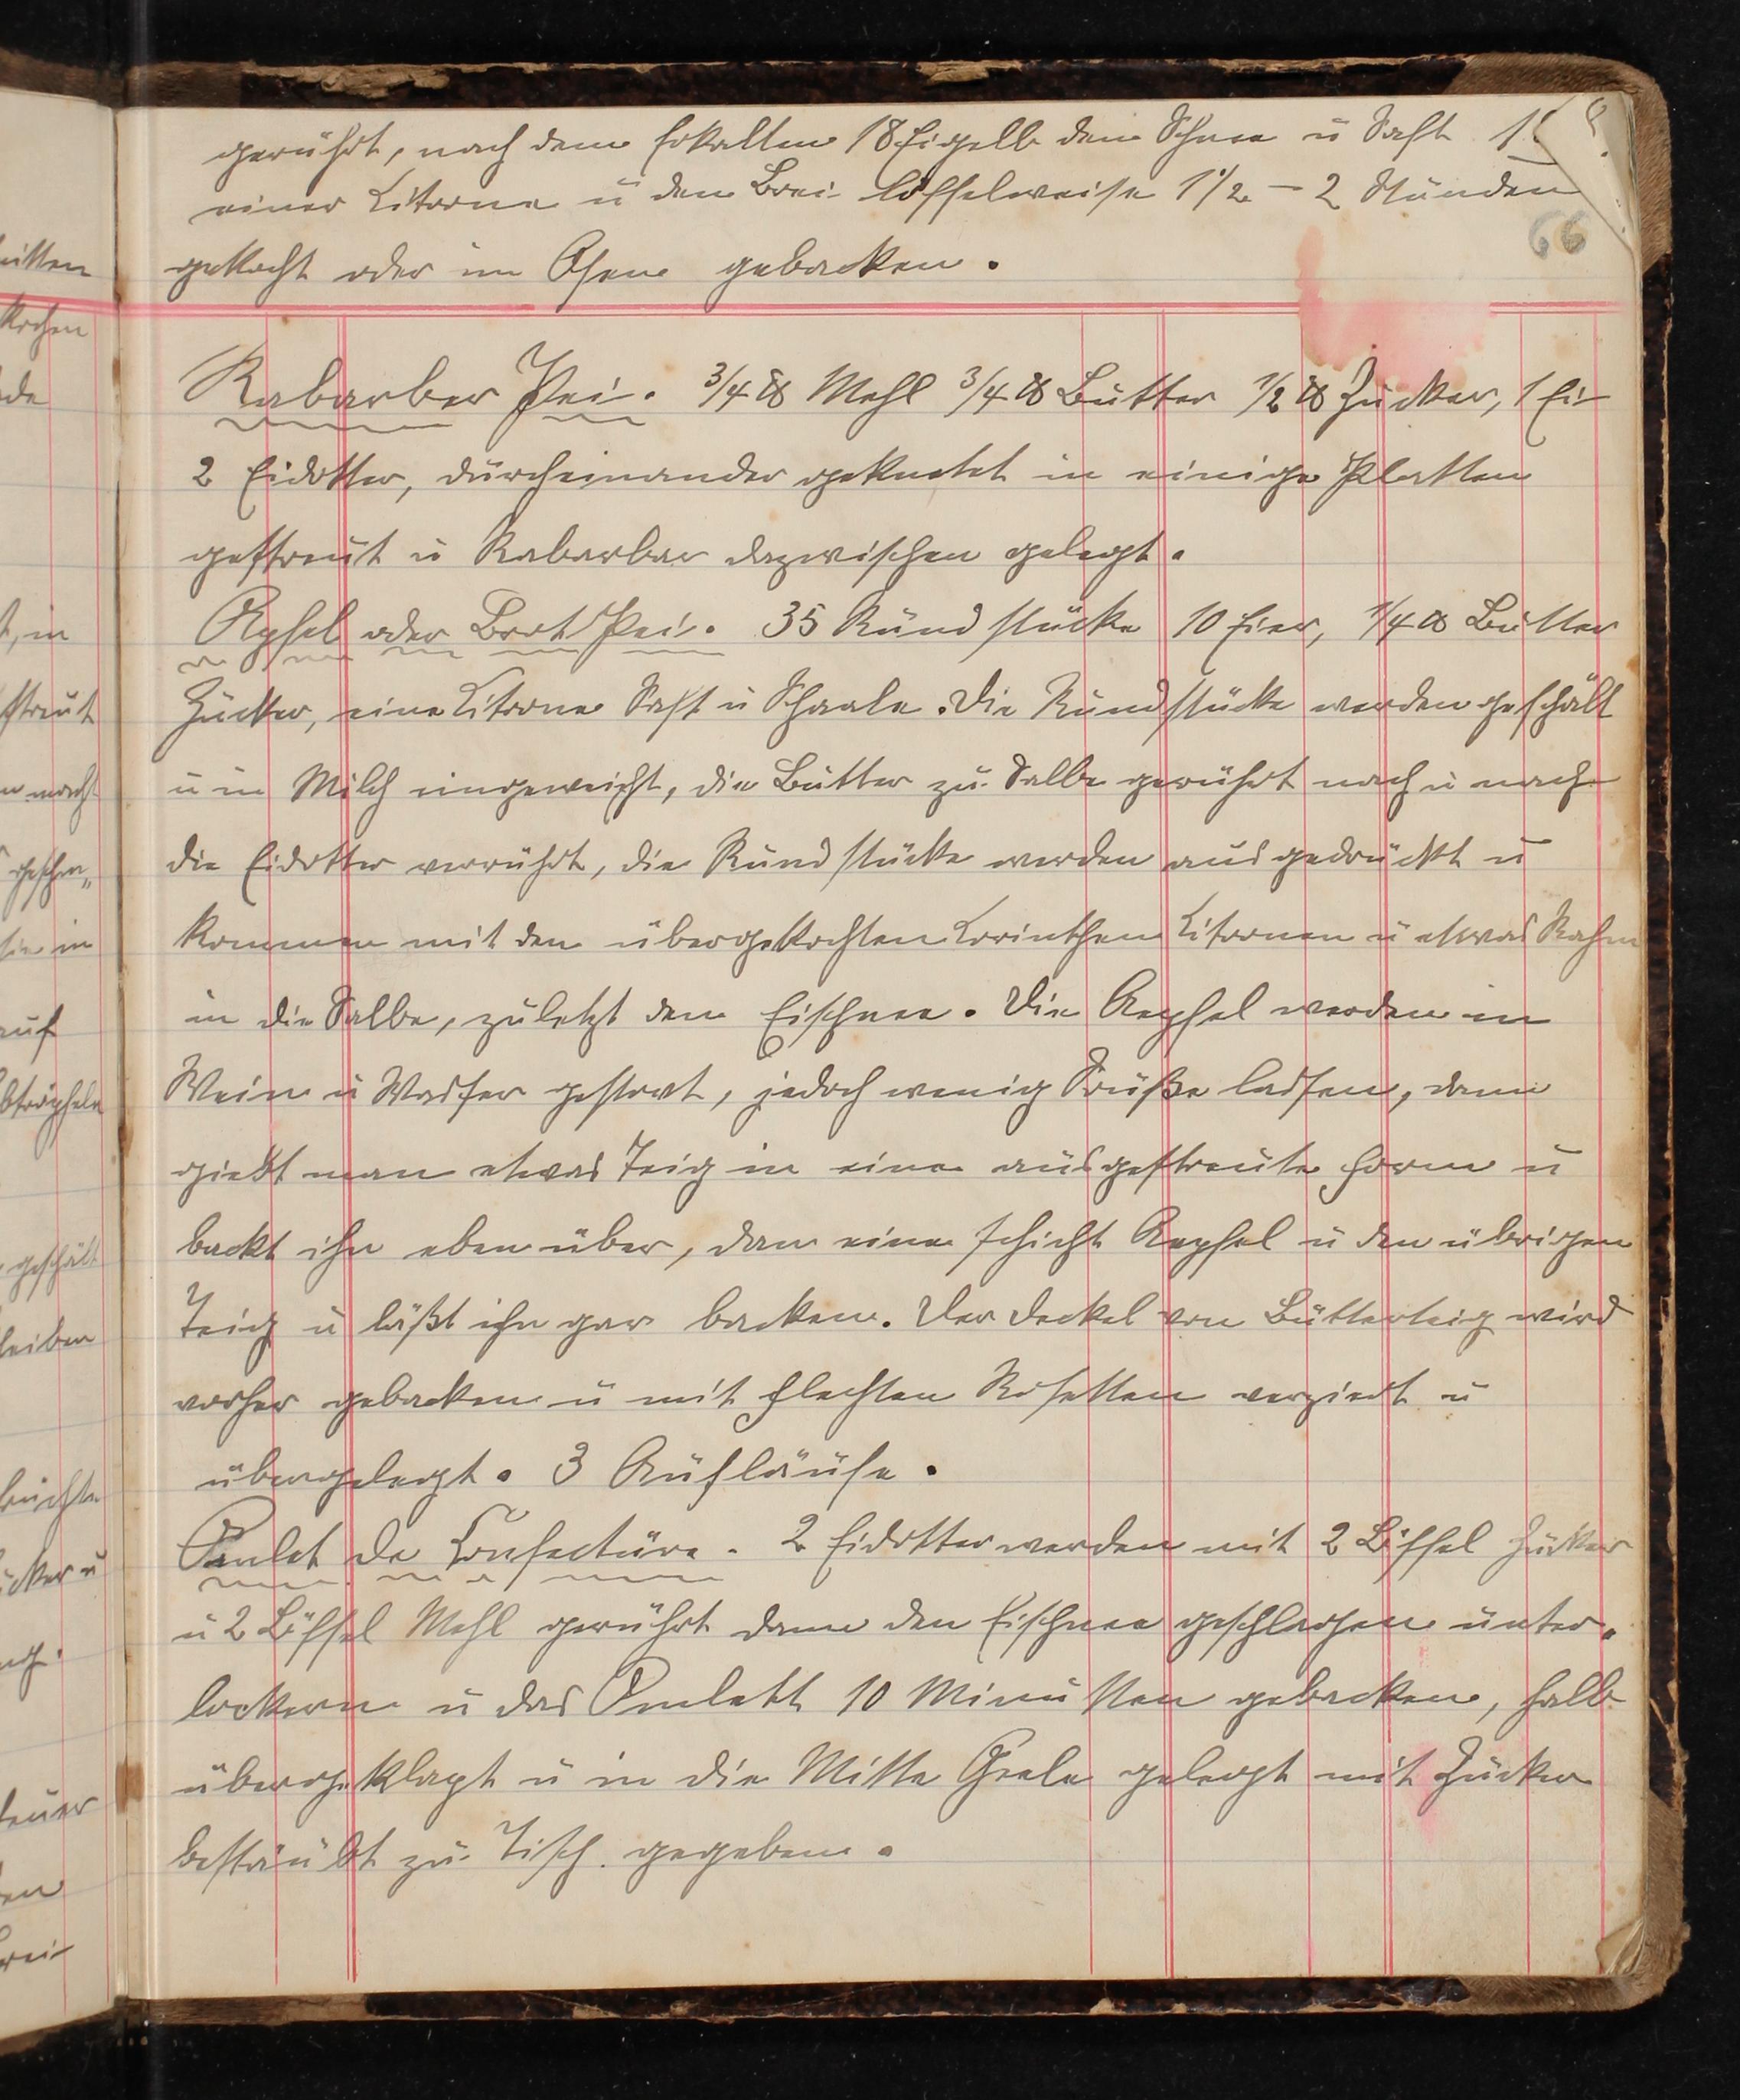 gerührt, nach dem Erkalten 18 Eigelb den Schnee u Saft
einer Zitrone u den Brei löffelweise 1 1/2 - 2 Stunden
66
gekocht oder im Ofen gebacken.
Rabarber Pei. 3/4 ℔ Mehl 3/4 ℔ Butter 1/2 ℔ Zucker, 1 Ei
2 Eidotter, durcheinander geknetet in einige Platten
gestreut u Rabarbar dazwischen gelegt.
Apfel oder Brot Pei. 35 Rundstücke 10 Eier, 1/4 ℔ Butter
Zucker, eine Zitrone Saft u Schaale. Die Rundstücke werden geschält
u in Milch eingeweicht, die Butter zu Salbe gerührt nach u nach
die Eidotter verrührt, die Rundstücke werden ausgedrückt u
kommen mit den übergekochten Corinthen Zitronen u etwas Rahm
in die Salbe, zuletzt den Eischnee. Die Aepfel werden in
Wein u Wasser gestovt, jedoch wenig lassen, dann
giebt man etwas Teig in eine ausgestreute Form u
backt ihn eben über, dan eine schicht Aepfel u den übrigen
Teig u läßt ihn gar backen. Der Deckel von Butterteig wird
vorher gebacken u mit flechten Rosetten verziert u
übergelegt. 3 Aufläufe.
Omlet de Confecture. 2 Eidotter werden mit 2 Löffel Zucker
u 2 Löffel Mehl gerührt dann den Eischnee geschlagen unter„
lockern u das Omlett 10 Minutten gebacken, halb
übergeklapt u in die Mitte Geele gelegt mit Zucker
bestäubt zu Tisch gegeben.